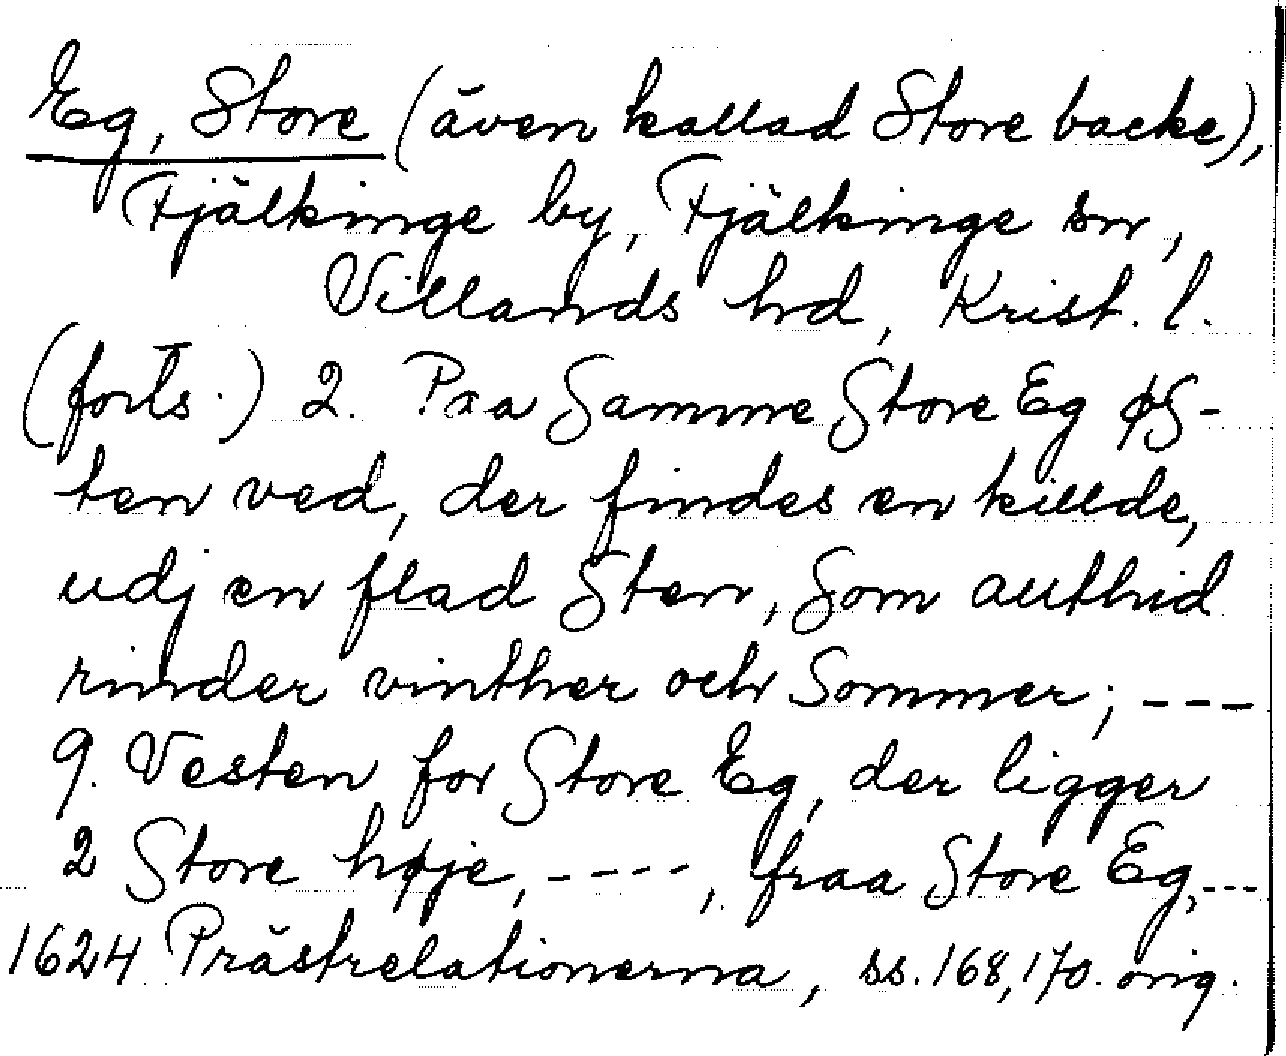 Eg, Store (även kallad Store backe),
Fjälkinge by, Fjälkinge sn,
Villands hd, Krist. l.
(forts.) 2. Paa Samme Store Eg øS-
ten ved, der findes en killde,
udj en flad Sten, Som aulthid
rinder vinther och Sommer; ---
9. Vesten for Store Eg, der ligger
2 Store høje, ----, fraa Store Eg, ---
1624 Prästrelationerna, ss. 168, 170. orig.